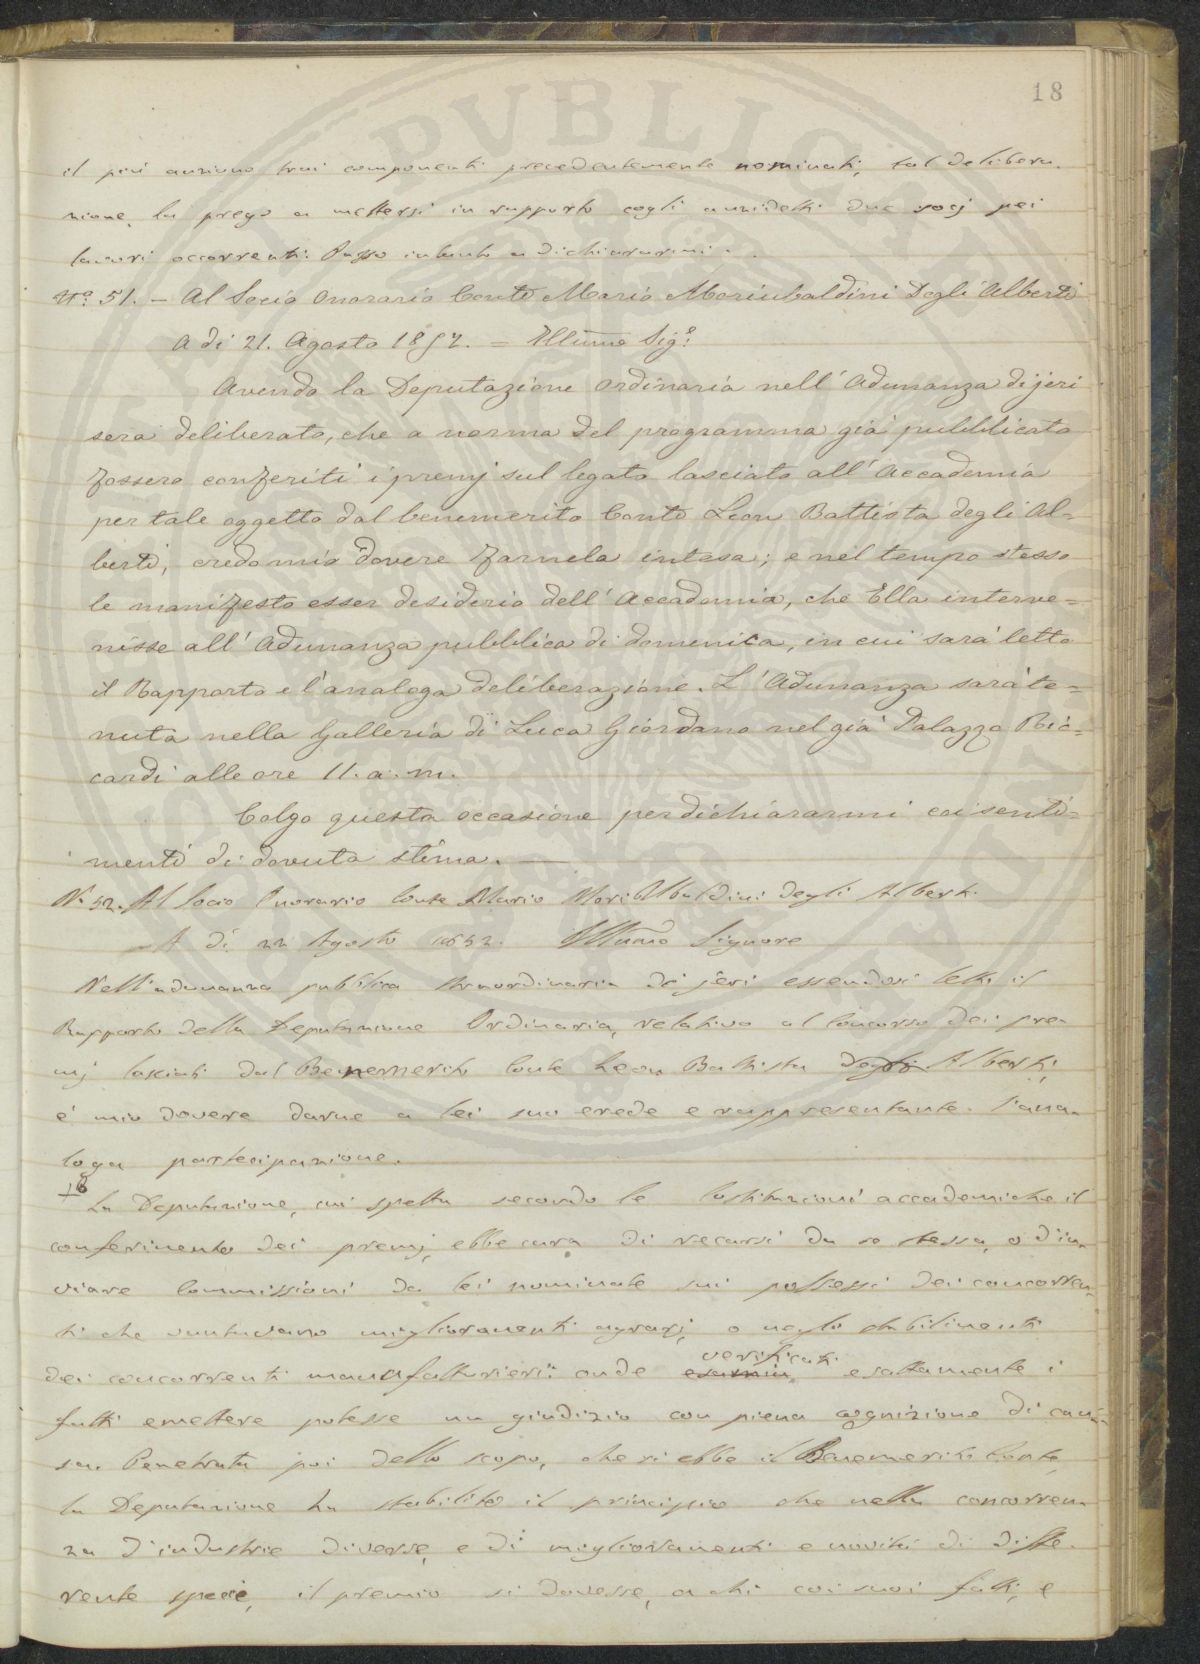 18
il più anziano trai componenti precedentemente nominati, tal delibera-
zione, la prego a mettersi in rapporto cogli anzidetti due socj pei
lavori occorrenti. Passo intanto a dichiararmi.
No. 51. – Al Socio Onorario Conte Mario Moriubaldini Degli Alberti
A di 21. Agosto 1852. = Illumo Sigr.
Avendo la Deputazione Ordinaria nell' Adunanza di jeri
sera deliberato, che a norma del programma già pubblicato
fossero conferiti i premj sul legato lasciato all' Accademia
per tale oggetto dal benemerito Conte Leon Battista degli Al=
berti, credo mio dovere farnela intesa; e nel tempo stesso
le manifesto esser desiderio dell' Accademia, che Ella interve=
nisse all' Adunanza pubblica di domenica, in cui sarà letto
il Rapporto e l'analoga deliberazione. L' Adunanza sarà te=
nuta nella Galleria di Luca Giordano nel già Palazzo Ric=
cardi alle ore 11. a. m.
Colgo questa occasione per dichiararmi coi senti=
menti di dovuta stima. —
No. 52. Al Socio Onorario Conte Mario Moriubaldini degli Alberti.
A dì 22 Agosto 1852. Illumo Signore
Nell'adunanza pubblica straordinaria di jeri essendosi letto il
Rapporto della Deputazione Ordinaria, relativo al Concorso dei pre-
mj lasciati dal Benemerito Conte Leon Battista degli Alberti,
è mio dovere darne a lei suo erede e rappresentante l'ana-
loga partecipazione.
La Deputazione, cui spetta secondo le Costituzioni accademiche il
conferimento dei premj, ebbe cura di recarsi da se stessa, o d'in-
viare Commissioni da lei nominate sui possessi dei concorren-
ti che vantavano miglioramenti agrarj, o negli stabilimenti
dei concorrenti manufatturieri: onde verificati esattamente i
fatti emettere potesse un giudizio con piena cognizione di cau-
sa. Penetrata poi dello scopo, che si ebbe il Benemerito Conte,
la Deputazione ha stabilito il principio che nella concorren-
za d'industrie diverse, e di miglioramenti e novità di diffe-
rente specie, il premio si dovesse, a chi coi suoi fatti, e